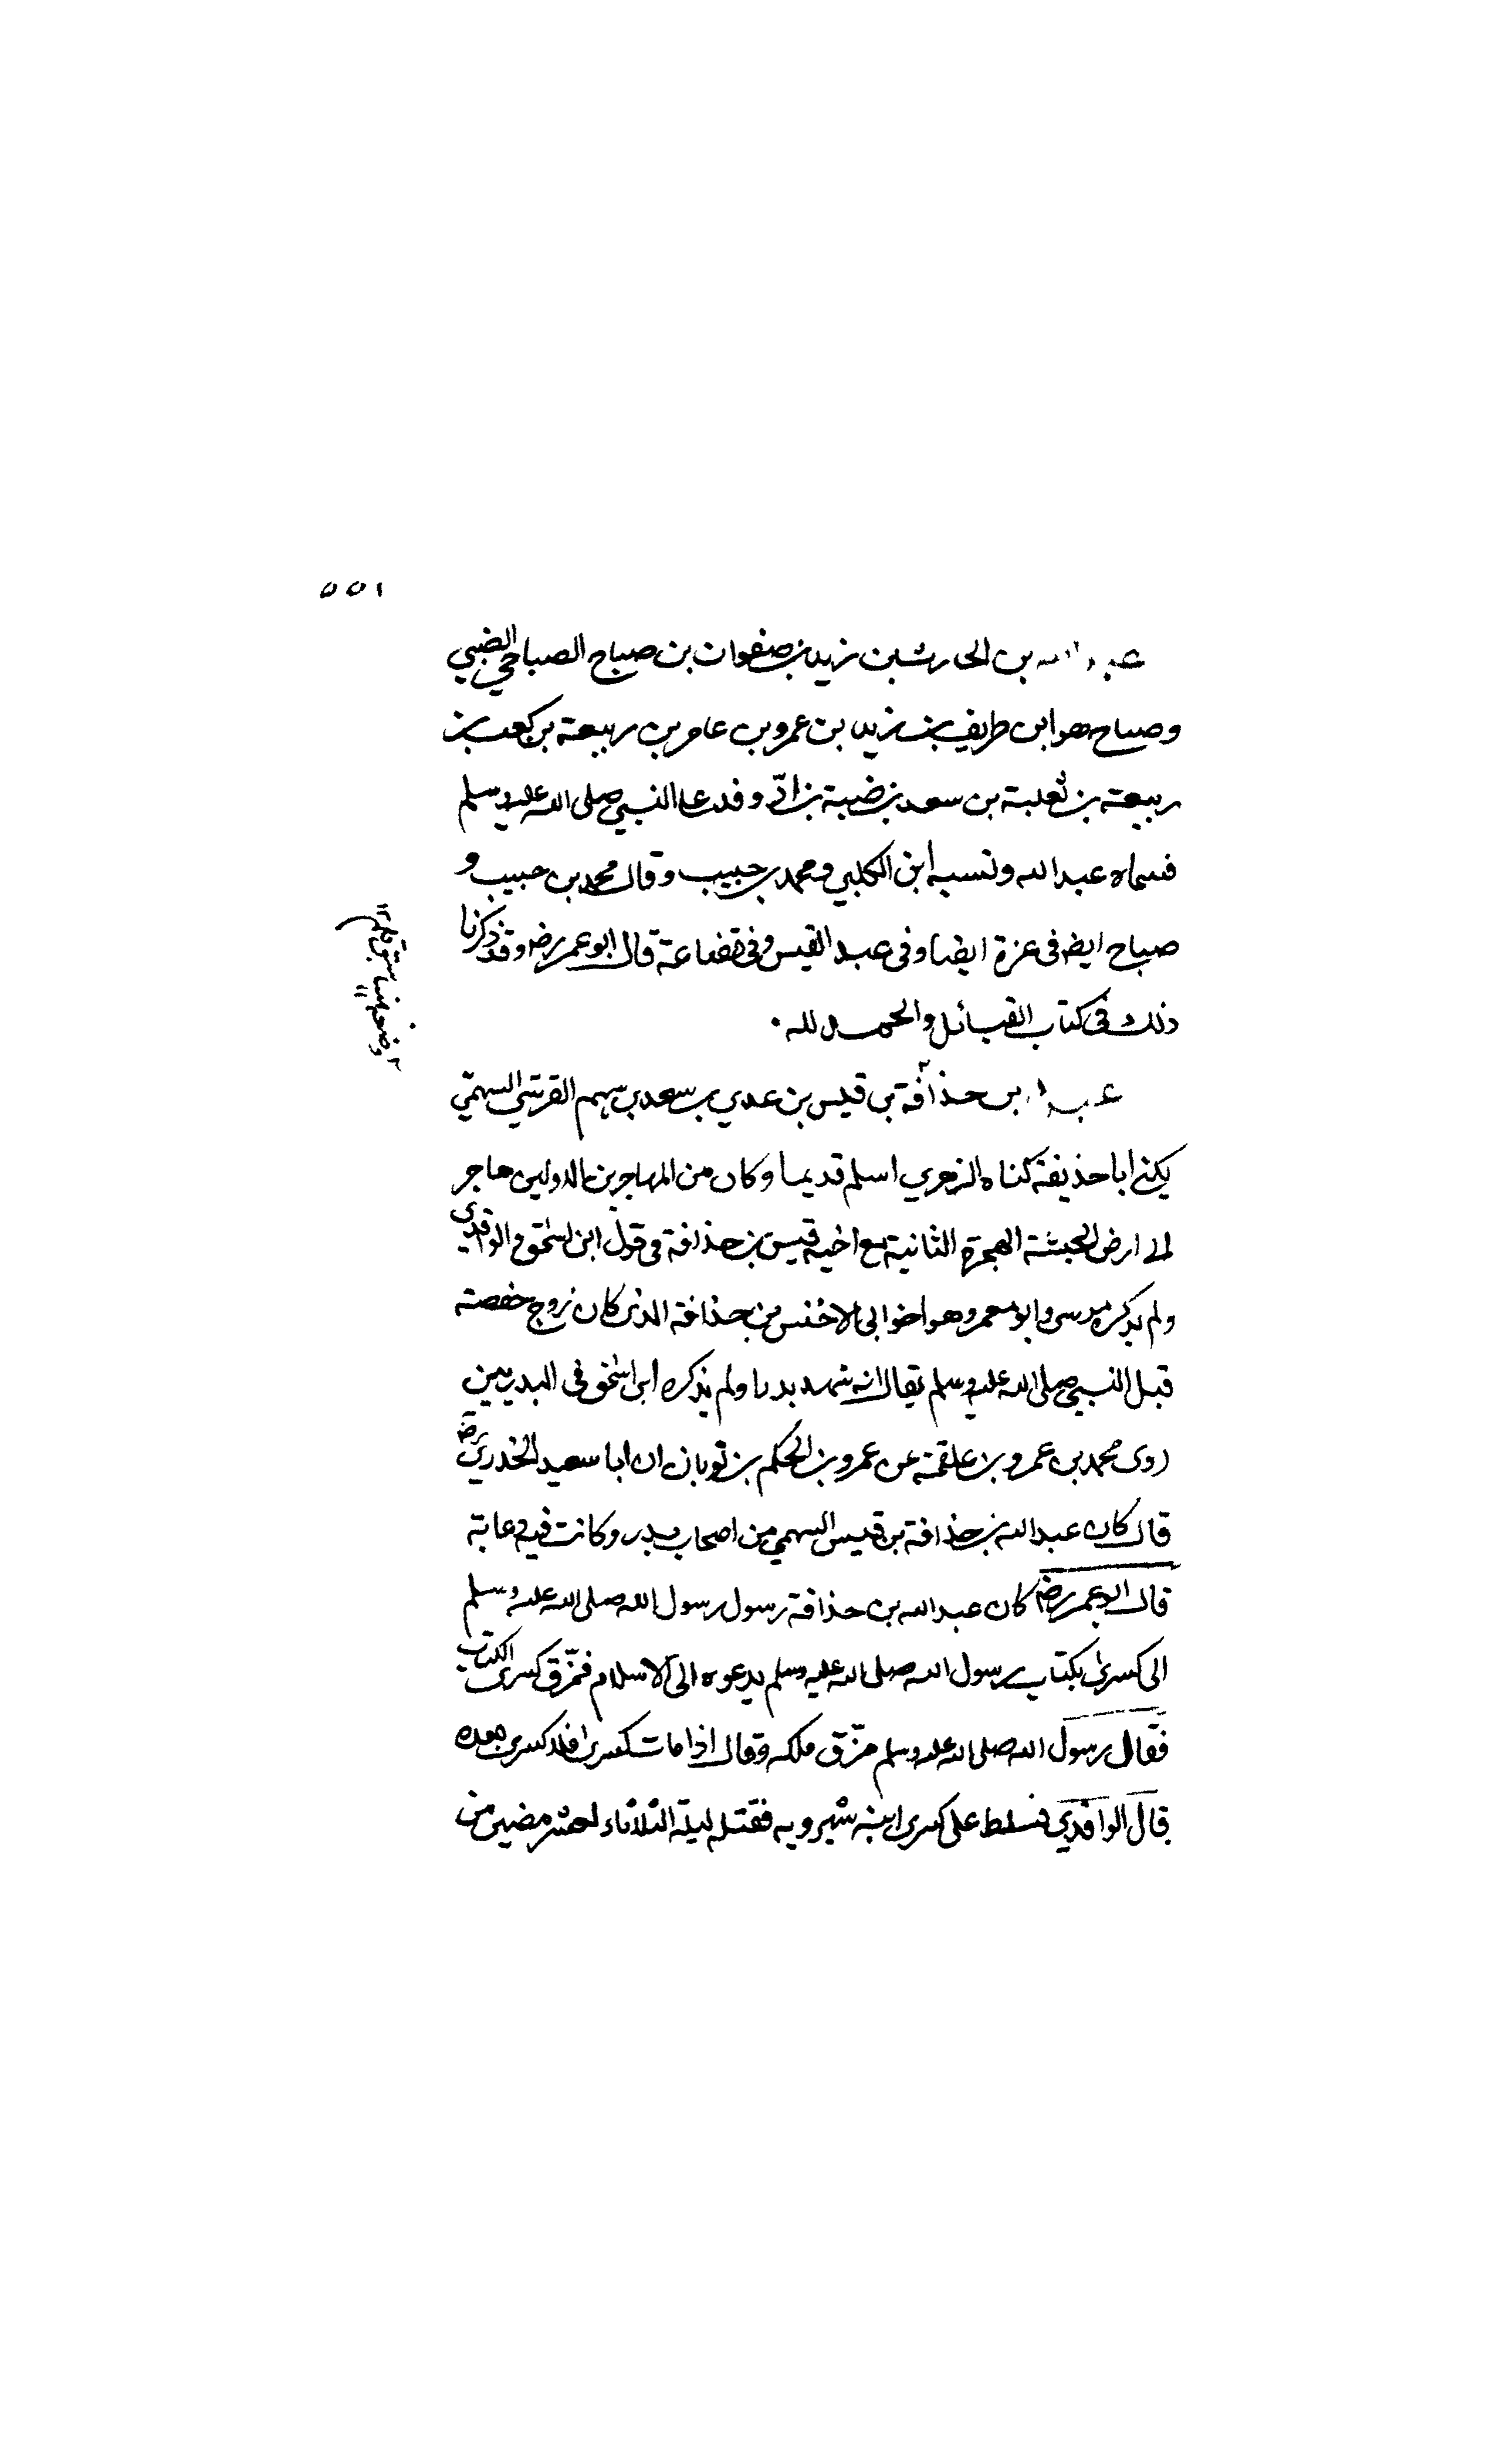 ٥٥١
عبد الله بن الحارث بن زيد بن صفوان بن صباح الصباحي الضبي
وصباح هو ابن طريف بن زيد بن عمرو بن عامر بن ربيعة بن كعب بن
ربيعة بن ثعلبة بن سعد بن ضبة بن ادّ وفد على النبي صلى الله عليه وسلم
فسماه عبد الله ونسبه ابن الكلبي ومحمد بن حبيب وقال محمد بن حبيب و
صباح ايضه فى عنزة ايضا وفى عبد القيس وفى قضاعة قال ابو عمر رضه وقد ذكرنا
ذلك فى كتاب القبائل والحمد لله
عبد الله بن حذافة بن قيس بن عدي بن سعد بن سهم القرشي السهمّي
يكنى ابا حذيفة كناه الزهري اسلم قديما وكان من المهاجرين الاولين هاجر
الى ارض الحبشة الهجرة الثانية مع اخيه قيس بن حذافة فى قول ابن اسحٰق والواقدي
ولم يذكره موسى وابو معمر وهو اخو ابى الاخنس بن حذافة الذى كان زوج حفصة
قبل النبي صلى الله عليه وسلم يقال انه شهد بدرا ولم يذكره ابن اسحٰق فى البدريين
روى محمد بن عمرو بن علقمة عن عمرو بن الحكم بن ثوبان ان ابا سعيد الخدري رضه
قال كان عبد الله بن حذافة بن قيس السهمي من اصحاب بدر وكانت فيه دعابة
قال ابو عمر رضه كان عبد الله بن حذافة رسول رسول الله صلى الله عليه وسلم
الى كسرىٰ بكتاب رسول الله صلى الله عليه وسلم يدعوه الى الاسلام فمزّق كسرى الكتاب
فقال رسول الله صلى الله عليه وسلم مزّق ملكه وقال اذا مات كسرىٰ فلا كسرى بعده
قال الواقدي فسلط على كسرى ابنه شيرويه فقتله ليلة الثلاثاء لعشر مضين من